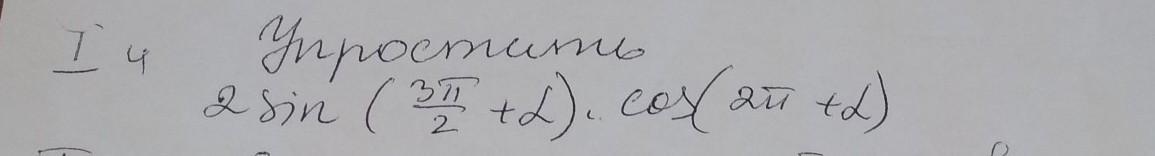 I ч Упростить
2 sin (3π/2 + α) · cos(2π + α)